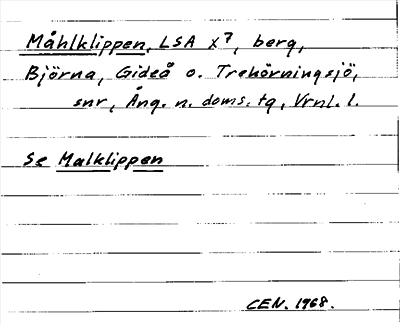 Måhlklippen, LSA x7, berg,
Björna, Gideå o. Trehörningsjö,
snr, Ång. n. doms. tg, Vrnl. l.
Se Malklippen
CEN. 1968.